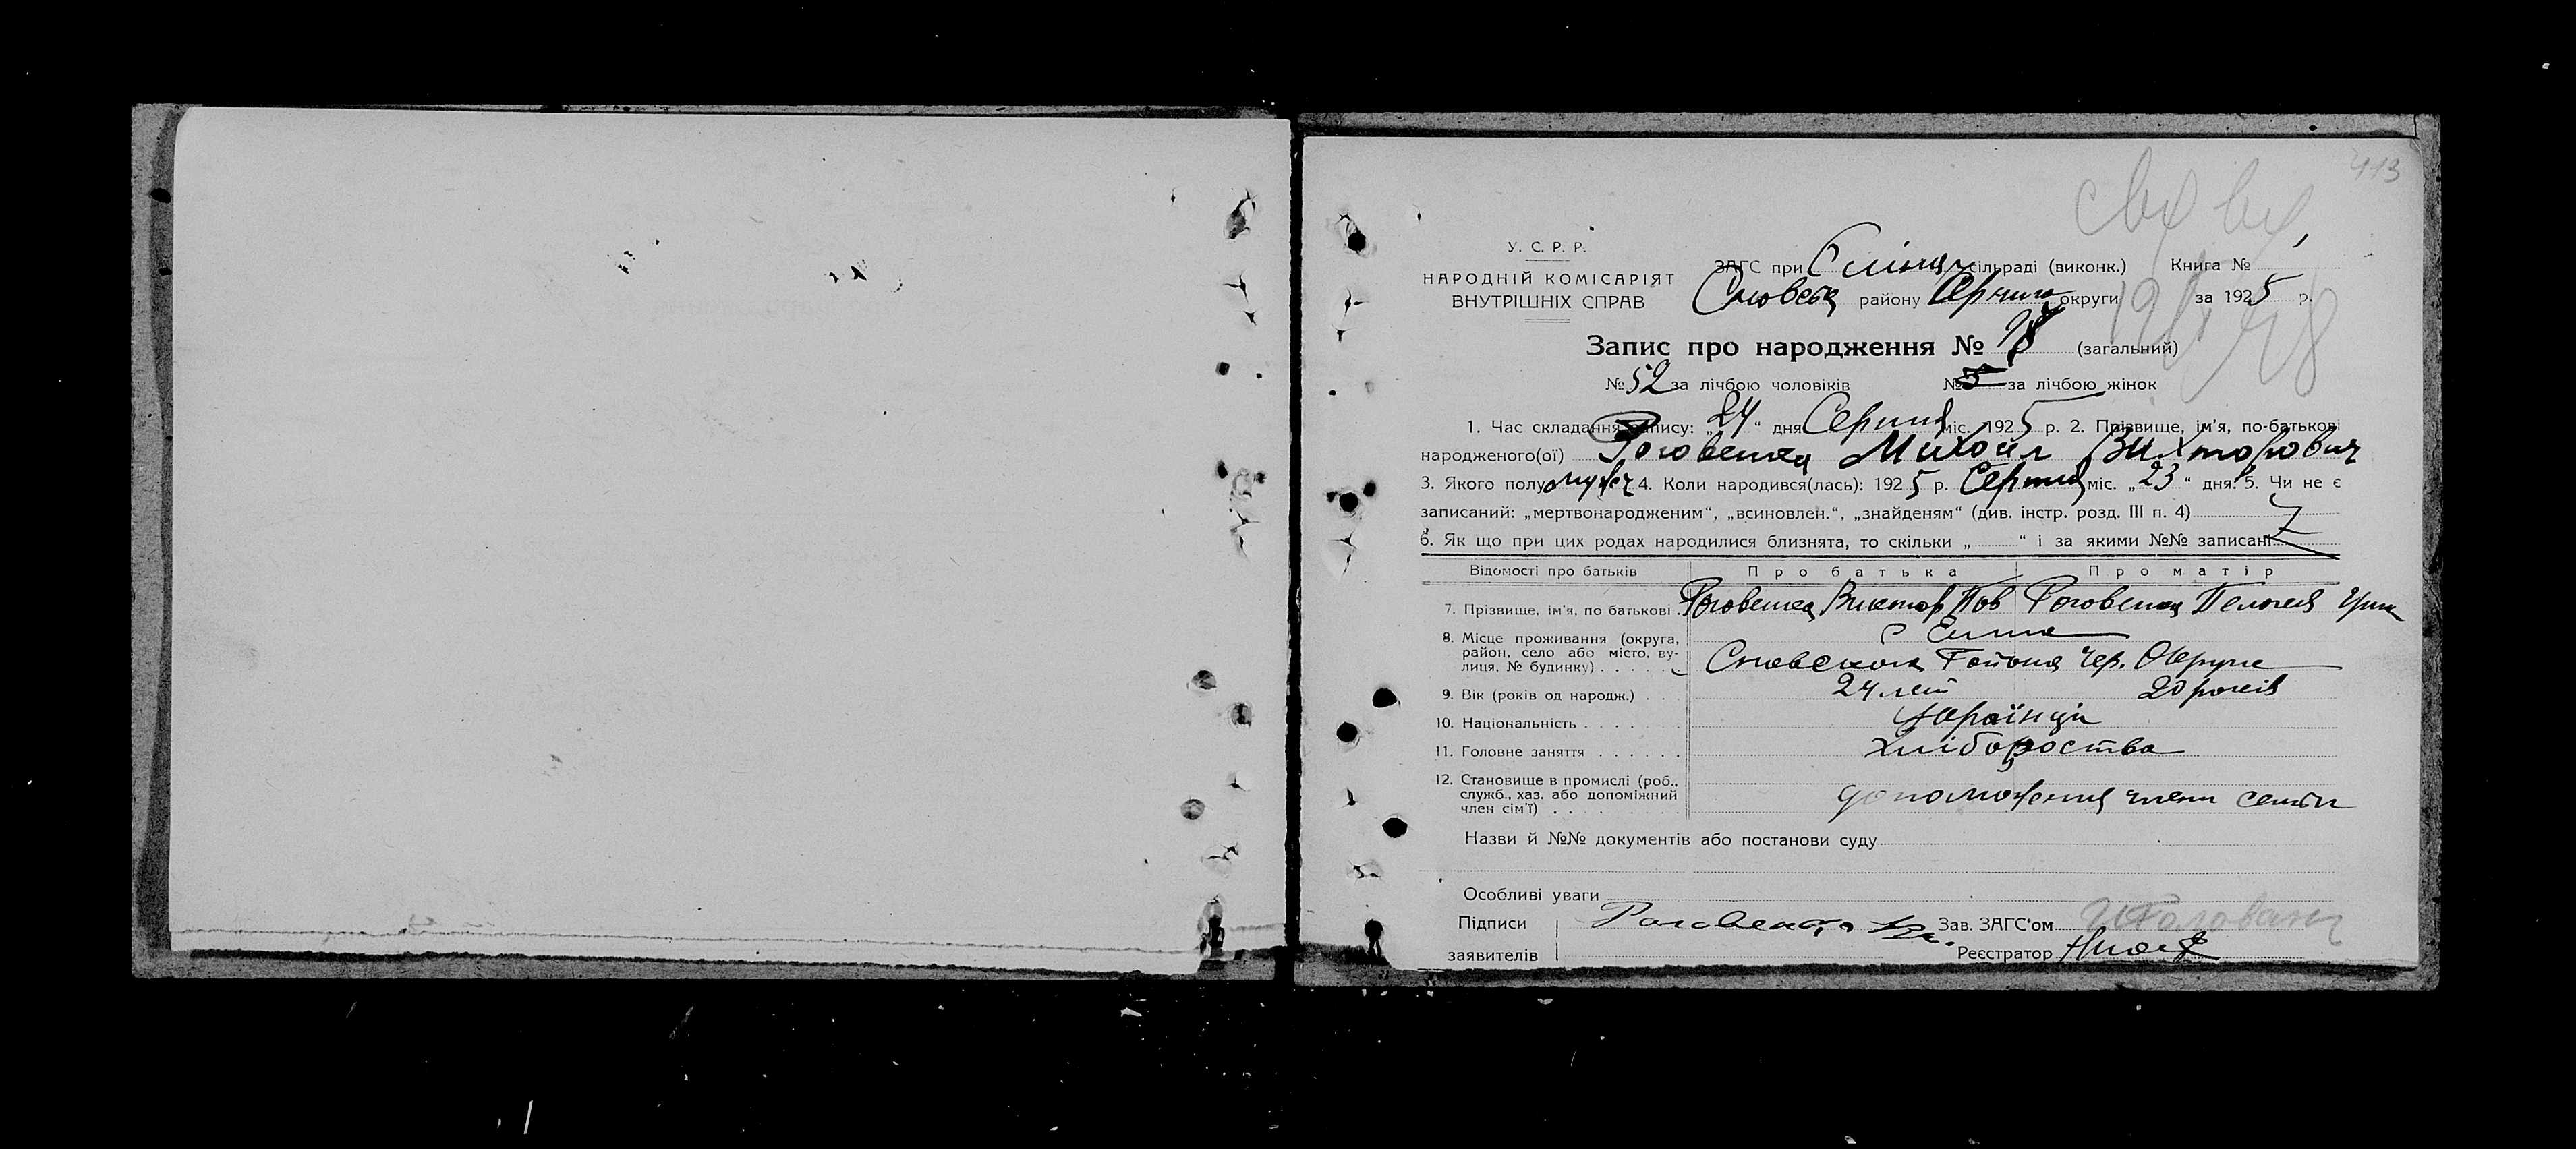 413
У. С. Р. Р.
НАРОДНІЙ КОМІСАРІЯТ
ВНУТРІШНІХ СПРАВ
ЗАГС при сільраді (виконк.) Книга №
Сновськ району округи за 1925 р.
Запис про народження № 78 (загальний)
№ 52 за лічбою чоловіків № за лічбою жінок
1. Час складання запису: „24“ дня Серпня міс. 1925 р. 2. Прізвище, ім'я, по-батькові
народженого(ої) Роговенка Михаил Вихторович
3. Якого полу мужеч 4. Коли народився(лась): 1925 р. Серпня міс. „23“ дня. 5. Чи не є
записаний: „мертвонародженим“, „всиновлен.“, „знайденям“ (див. інстр. розд. III п. 4)
6. Як що при цих родах народилися близнята, то скільки „ “ і за якими №№ записані
Відомості про батьків Про батька Про матір
7. Прізвище, ім'я, по батькові . Роговенка Виктор Пов Роговенка Пелагея Григ
8. Місце проживання (округа, район, село або місто, вулиця, № будинку) . . . . . с Елине
Сновского Района Чер. Округи
9. Вік (років од народж.) . . 24 лет 20 років
10. Національність . . . . . Українці
11. Головне заняття . . . . . . хліборобства
12. Становище в промислі (роб., служб., хаз. або допоміжний член сім'ї) . . . . . . . . допоможения члени семьи
Назви й №№ документів або постанови суду
Особливі уваги
Підписи Роговенко Зав. ЗАГС'ом
заявителів Реєстратор